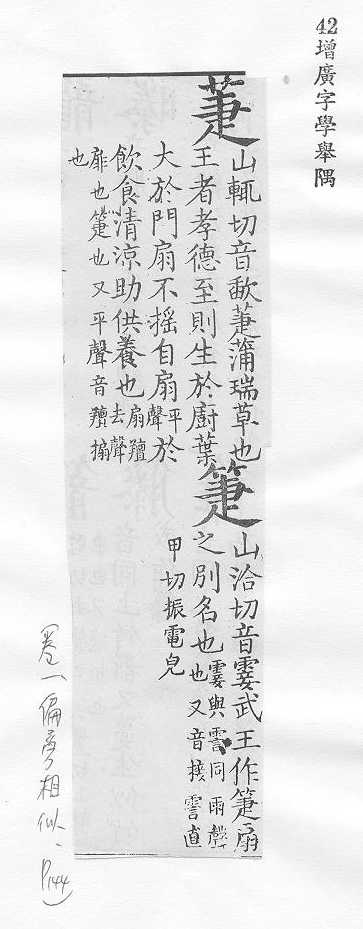 42增廣字學舉隅
萐 山輒切音歃萐蒲瑞草也
王者孝德至則生於廚葉
大於門扇不搖自扇平聲於
飲食清涼助供養也扇羶去聲
扉也箑也又平聲音羶搧
也
箑 山洽切音霎武王作箑扇
之別名也霎與霅同雨聲也又音接霅直
甲切振電皃
(卷一偏旁相似、P144)